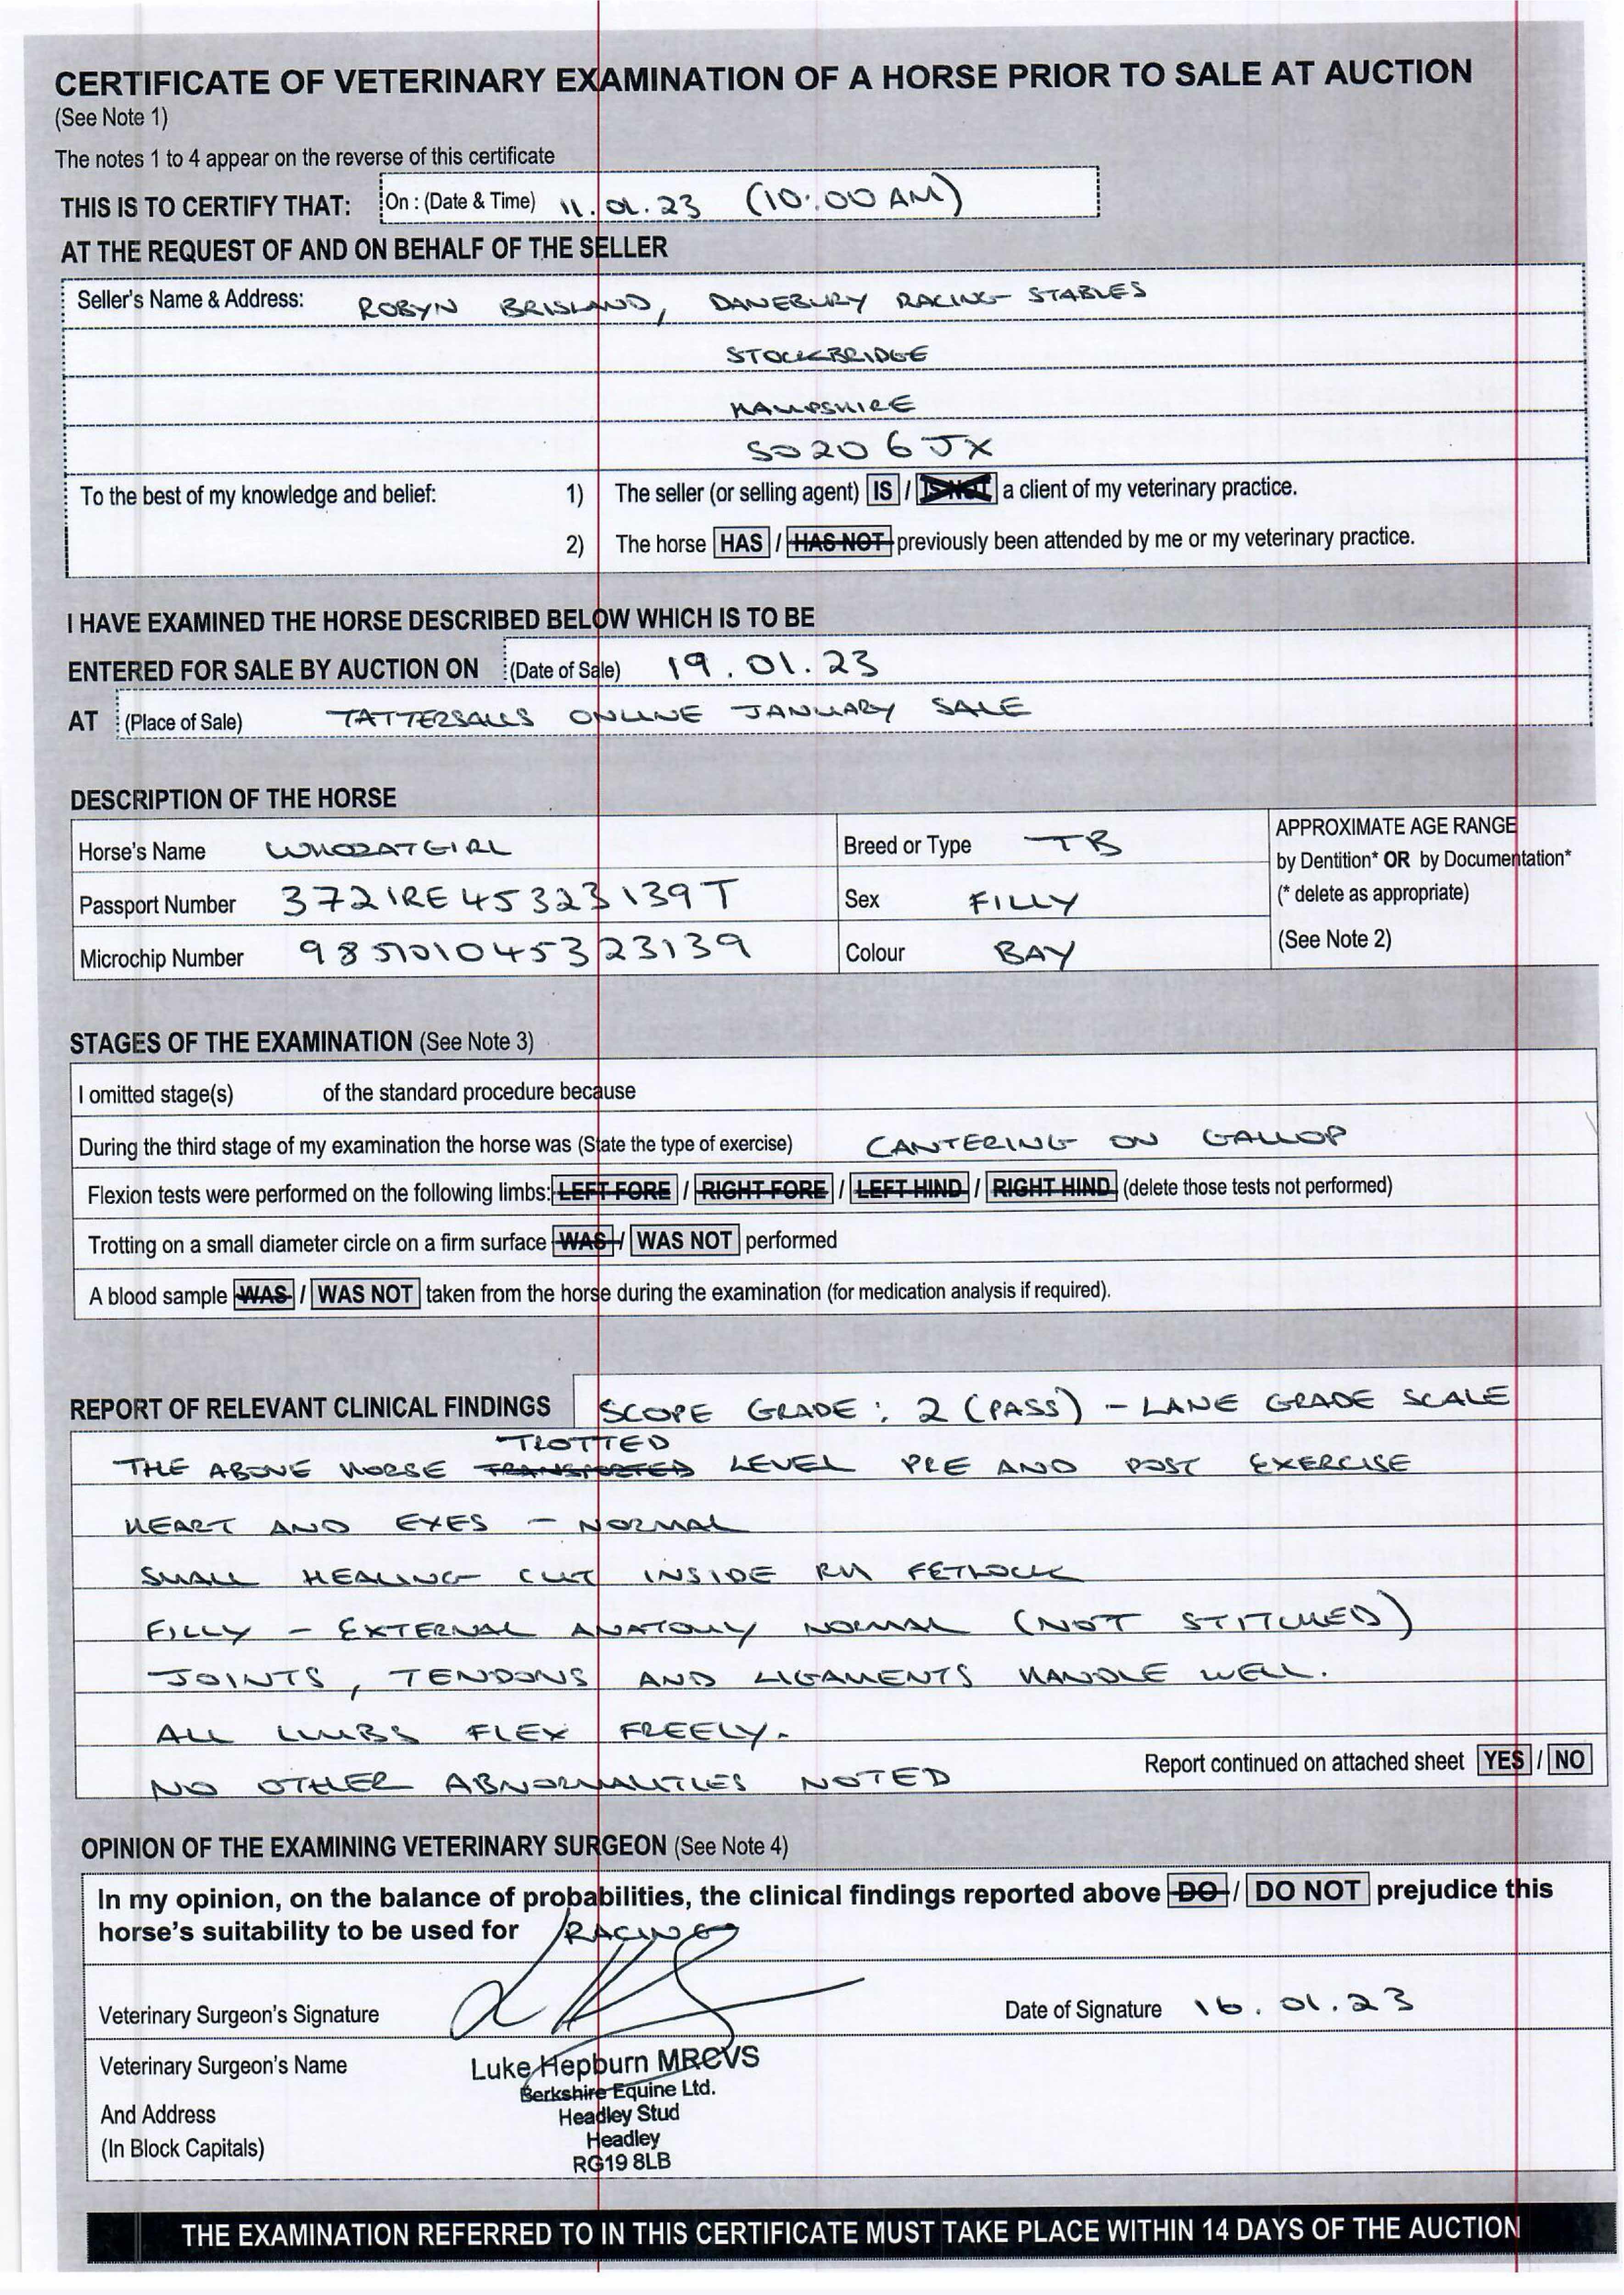 CERTIFICATE OF VETERINARY EXAMINATION OF A HORSE PRIOR TO SALE AT AUCTION
(See Note 1)
The notes 1 to 4 appear on the reverse of this certificate
THIS IS TO CERTIFY THAT: On : (Date & Time) 11.01.23 (10:00 AM)
AT THE REQUEST OF AND ON BEHALF OF THE SELLER
Seller's Name & Address: ROBYN BRISLAND, DANEBURY RACING STABLES
STOCKBRIDGE
HAMPSHIRE
SO20 6JX
To the best of my knowledge and belief: 1) The seller (or selling agent) IS / IS NOT a client of my veterinary practice.
2) The horse HAS / HAS NOT previously been attended by me or my veterinary practice.
I HAVE EXAMINED THE HORSE DESCRIBED BELOW WHICH IS TO BE
ENTERED FOR SALE BY AUCTION ON (Date of Sale) 19.01.23
AT (Place of Sale) TATTERSALLS ONLINE JANUARY SALE
DESCRIPTION OF THE HORSE
Horse's Name WHOZATGIRL Breed or Type TB APPROXIMATE AGE RANGE
by Dentition* OR by Documentation*
Passport Number 372IRE45323139T Sex FILLY (* delete as appropriate)
Microchip Number 985101045323139 Colour BAY (See Note 2)
STAGES OF THE EXAMINATION (See Note 3)
I omitted stage(s) of the standard procedure because
During the third stage of my examination the horse was (State the type of exercise) CANTERING ON GALLOP
Flexion tests were performed on the following limbs: LEFT FORE / RIGHT FORE / LEFT HIND / RIGHT HIND (delete those tests not performed)
Trotting on a small diameter circle on a firm surface WAS / WAS NOT performed
A blood sample WAS / WAS NOT taken from the horse during the examination (for medication analysis if required).
REPORT OF RELEVANT CLINICAL FINDINGS SCOPE GRADE : 2 (PASS) - LANE GRADE SCALE
TROTTED
THE ABOVE HORSE TRANSPORTED LEVEL PRE AND POST EXERCISE
HEART AND EYES - NORMAL
SMALL HEALING CUT INSIDE RH FETLOCK
FILLY - EXTERNAL ANATOMY NORMAL (NOT STITCHED)
JOINTS, TENDONS AND LIGAMENTS HANDLE WELL.
ALL LIMBS FLEX FREELY.
NO OTHER ABNORMALITIES NOTED Report continued on attached sheet YES / NO
OPINION OF THE EXAMINING VETERINARY SURGEON (See Note 4)
In my opinion, on the balance of probabilities, the clinical findings reported above DO / DO NOT prejudice this
horse's suitability to be used for RACING
Veterinary Surgeon's Signature Date of Signature 16.01.23
Veterinary Surgeon's Name Luke Hepburn MRCVS
Berkshire Equine Ltd.
And Address Headley Stud
(In Block Capitals) Headley
RG19 8LB
THE EXAMINATION REFERRED TO IN THIS CERTIFICATE MUST TAKE PLACE WITHIN 14 DAYS OF THE AUCTION